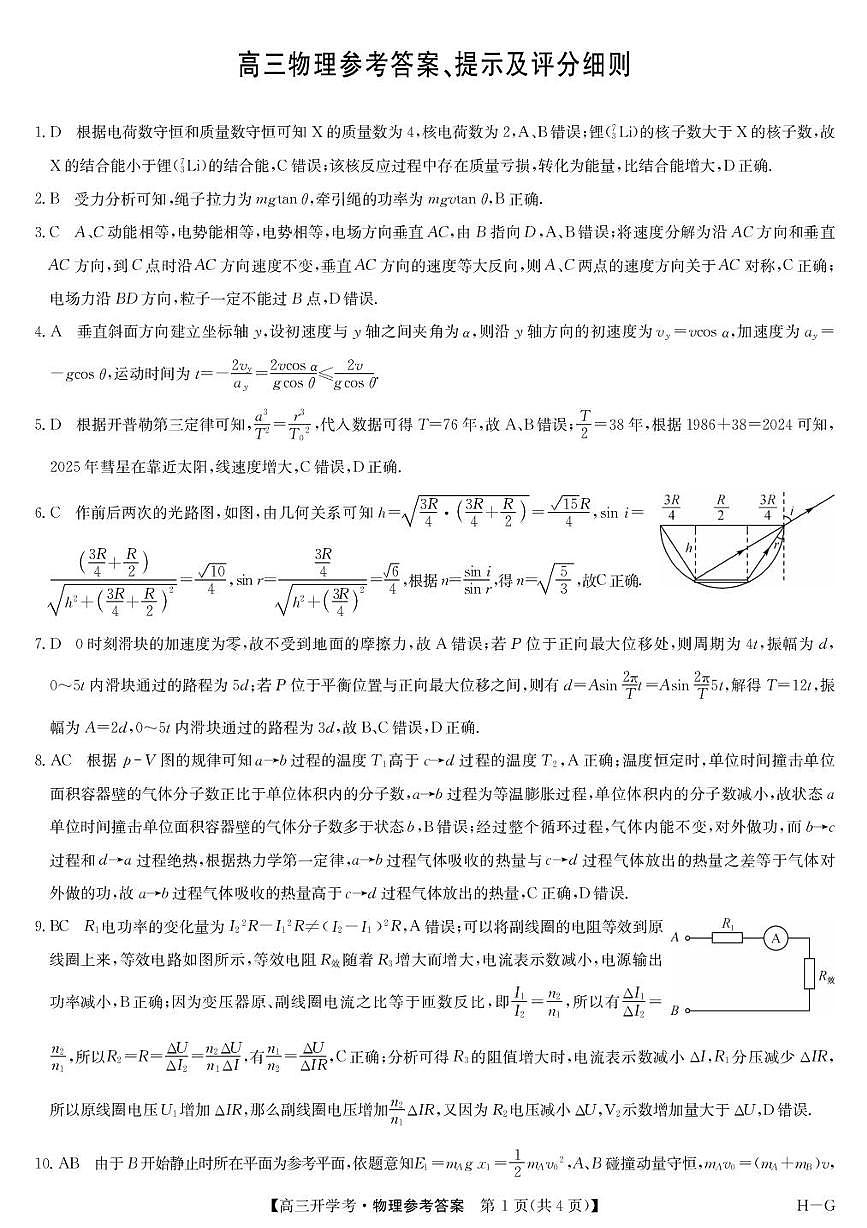 高三物理参考答案、提示及评分细则
1. D 根据电荷数守恒和质量数守恒可知 X 的质量数为 4,核电荷数为 2,A、B 错误;锂(⁷₃Li)的核子数大于 X 的核子数,故
X 的结合能小于锂(⁷₃Li)的结合能,C 错误;该核反应过程中存在质量亏损,转化为能量,比结合能增大,D 正确.
2. B 受力分析可知,绳子拉力为 mgtan θ,牵引绳的功率为 mgvtan θ,B 正确.
3. C A、C 动能相等,电势能相等,电势相等,电场方向垂直 AC,由 B 指向 D,A、B 错误;将速度分解为沿 AC 方向和垂直
AC 方向,到 C 点时沿 AC 方向速度不变,垂直 AC 方向的速度等大反向,则 A、C 两点的速度方向关于 AC 对称,C 正确;
电场力沿 BD 方向,粒子一定不能过 B 点,D 错误.
4. A 垂直斜面方向建立坐标轴 y,设初速度与 y 轴之间夹角为 α,则沿 y 轴方向的初速度为 v_y=vcos α,加速度为 a_y=
-gcos θ,运动时间为 t=-2v_y/a_y=2vcos α/gcos θ≤2v/gcos θ.
5. D 根据开普勒第三定律可知,a³/T²=r³/T₀²,代入数据可得 T=76 年,故 A、B 错误;T/2=38 年,根据 1986+38=2024 可知,
2025 年彗星在靠近太阳,线速度增大,C 错误,D 正确.
6. C 作前后两次的光路图,如图,由几何关系可知 h=√(3R/4·(3R/4+R/2))=√15R/4,sin i=
(3R/4+R/2)/√(h²+(3R/4+R/2)²)=√10/4,sin r=(3R/4)/√(h²+(3R/4)²)=√6/4,根据 n=sin i/sin r,得 n=√(5/3),故C 正确.
3R/4 R/2 3R/4 i
h r
7. D 0 时刻滑块的加速度为零,故不受到地面的摩擦力,故 A 错误;若 P 位于正向最大位移处,则周期为 4t,振幅为 d,
0~5t 内滑块通过的路程为 5d;若 P 位于平衡位置与正向最大位移之间,则有 d=Asin 2π/T t=Asin 2π/T 5t,解得 T=12t,振
幅为 A=2d,0~5t 内滑块通过的路程为 3d,故 B、C 错误,D 正确.
8. AC 根据 p-V 图的规律可知 a→b 过程的温度 T₁高于 c→d 过程的温度 T₂,A 正确;温度恒定时,单位时间撞击单位
面积容器壁的气体分子数正比于单位体积内的分子数,a→b 过程为等温膨胀过程,单位体积内的分子数减小,故状态 a
单位时间撞击单位面积容器壁的气体分子数多于状态 b,B 错误;经过整个循环过程,气体内能不变,对外做功,而 b→c
过程和 d→a 过程绝热,根据热力学第一定律,a→b 过程气体吸收的热量与 c→d 过程气体放出的热量之差等于气体对
外做的功,故 a→b 过程气体吸收的热量高于 c→d 过程气体放出的热量,C 正确,D 错误.
9. BC R₁电功率的变化量为 I₂²R-I₁²R≠(I₂-I₁)²R,A 错误;可以将副线圈的电阻等效到原
线圈上来,等效电路如图所示,等效电阻 R效随着 R₃增大而增大,电流表示数减小,电源输出
功率减小,B 正确;因为变压器原、副线圈电流之比等于匝数反比,即I₁/I₂=n₂/n₁,所以有ΔI₁/ΔI₂=
A R₁ A
R效
B
n₂/n₁,所以R₂=R=ΔU/ΔI₂=n₂ΔU/n₁ΔI,有n₁/n₂=ΔU/ΔIR,C 正确;分析可得 R₃的阻值增大时,电流表示数减小 ΔI,R₁分压减少 ΔIR,
所以原线圈电压 U₁增加 ΔIR,那么副线圈电压增加n₂/n₁ΔIR,又因为 R₂电压减小 ΔU,V₂示数增加量大于 ΔU,D 错误.
10. AB 由于 B 开始静止时所在平面为参考平面,依题意知E₁=m_A g x₁=1/2 m_A v₀²,A、B 碰撞动量守恒,m_A v₀=(m_A+m_B)v,
【高三开学考·物理参考答案 第 1 页(共 4 页)】
H-G